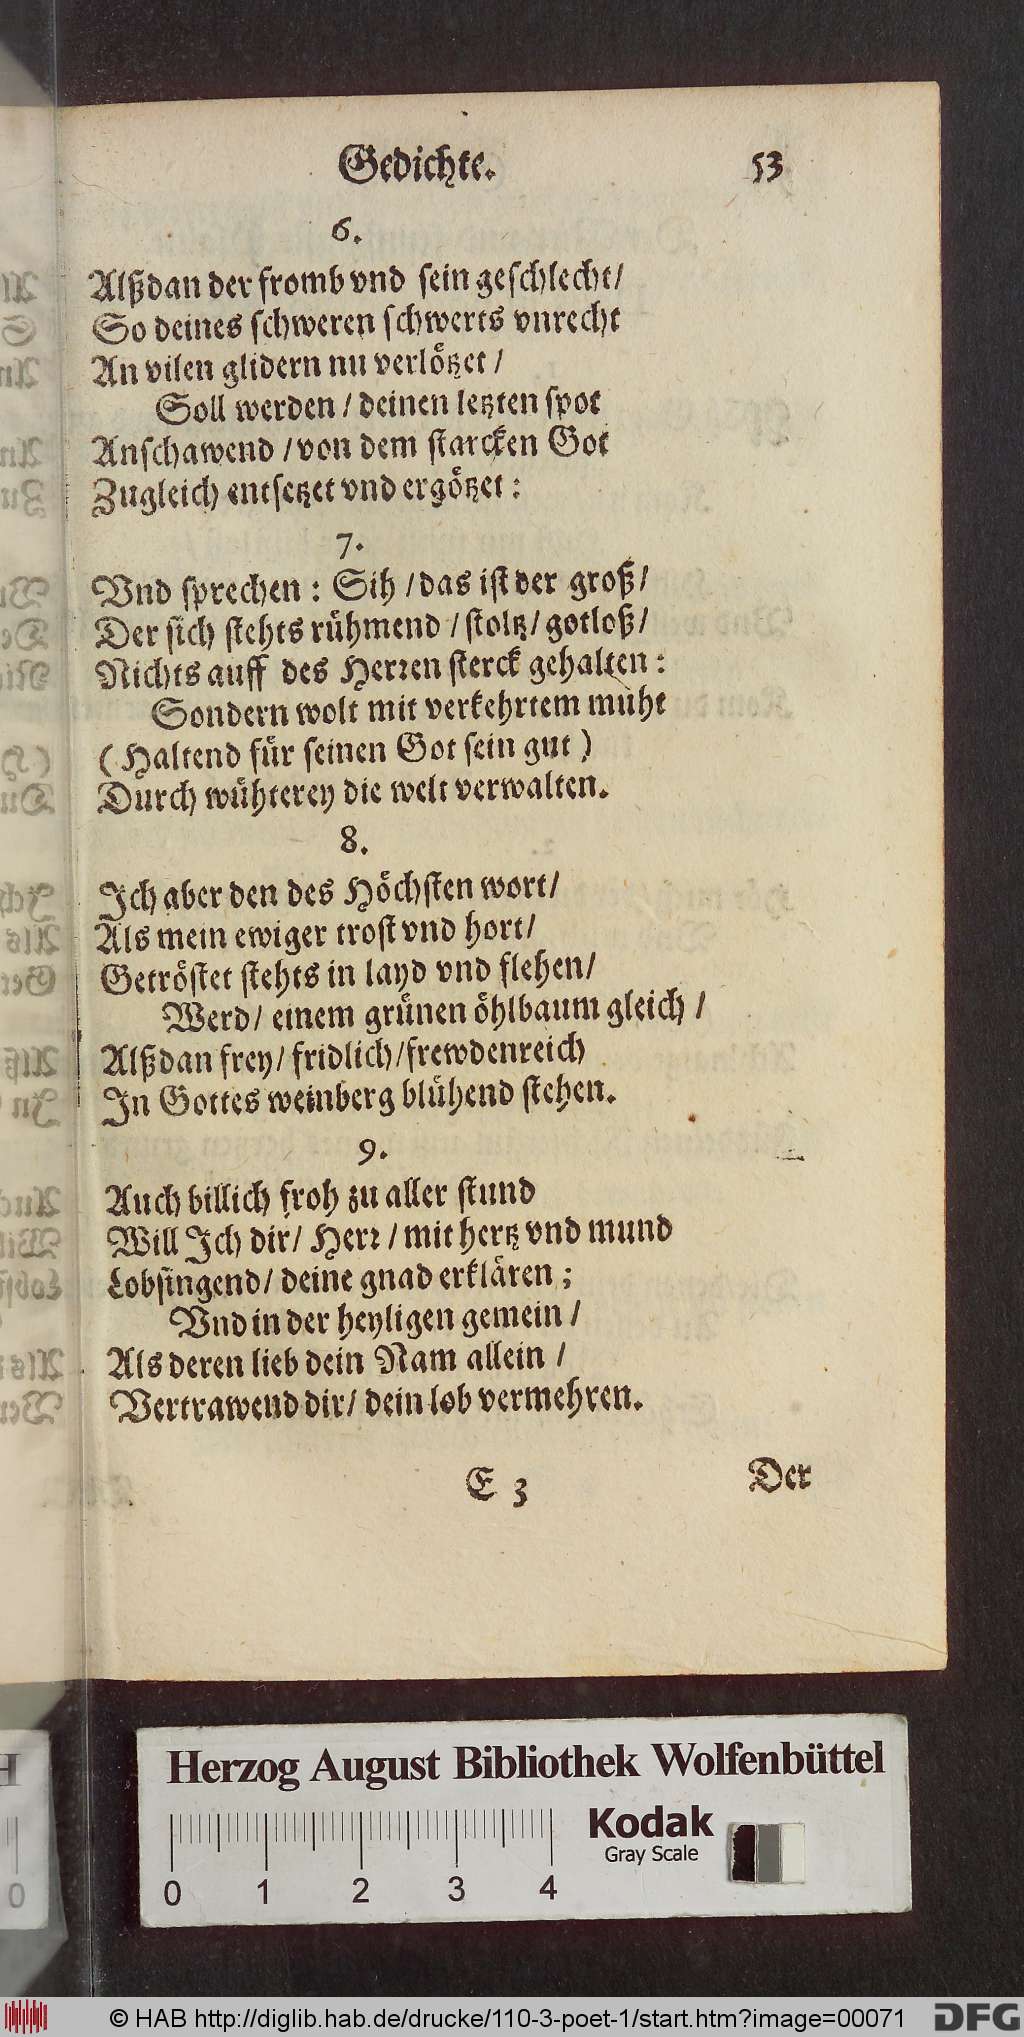 Gedichte. 53
6.
Alßdan der fromb vnd sein geschlecht/
So deines schweren schwerts vnrecht
An vilen glidern nu verlötzet /
Soll werden / deinen letzten spot
Anschawend / von dem starcken Got
Zugleich entsetzet vnd ergötzet :
7.
Vnd sprechen : Sih / das ist der groß/
Der sich stehts rühmend / stoltz/ gotloß/
Nichts auff des Herren sterck gehalten :
Sondern wolt mit verkehrtem muht
( Haltend für seinen Got sein gut )
Durch wühterey die welt verwalten.
8.
Ich aber den des Höchsten wort/
Als mein ewiger trost vnd hort/
Getröstet stehts in layd vnd flehen/
Werd/ einem grünen öhlbaum gleich /
Alßdan frey/ fridlich/frewdenreich
In Gottes weinberg blühend stehen.
9.
Auch billich froh zu aller stund
Will Ich dir/ Herr / mit hertz vnd mund
Lobsingend/ deine gnad erklären ;
Vnd in der heyligen gemein /
Als deren lieb dein Nam allein /
Vertrawend dir/ dein lob vermehren.
E 3 Der
Herzog August Bibliothek Wolfenbüttel
Kodak
Gray Scale
0 1 2 3 4
© HAB http://diglib.hab.de/drucke/110-3-poet-1/start.htm?image=00071
DFG